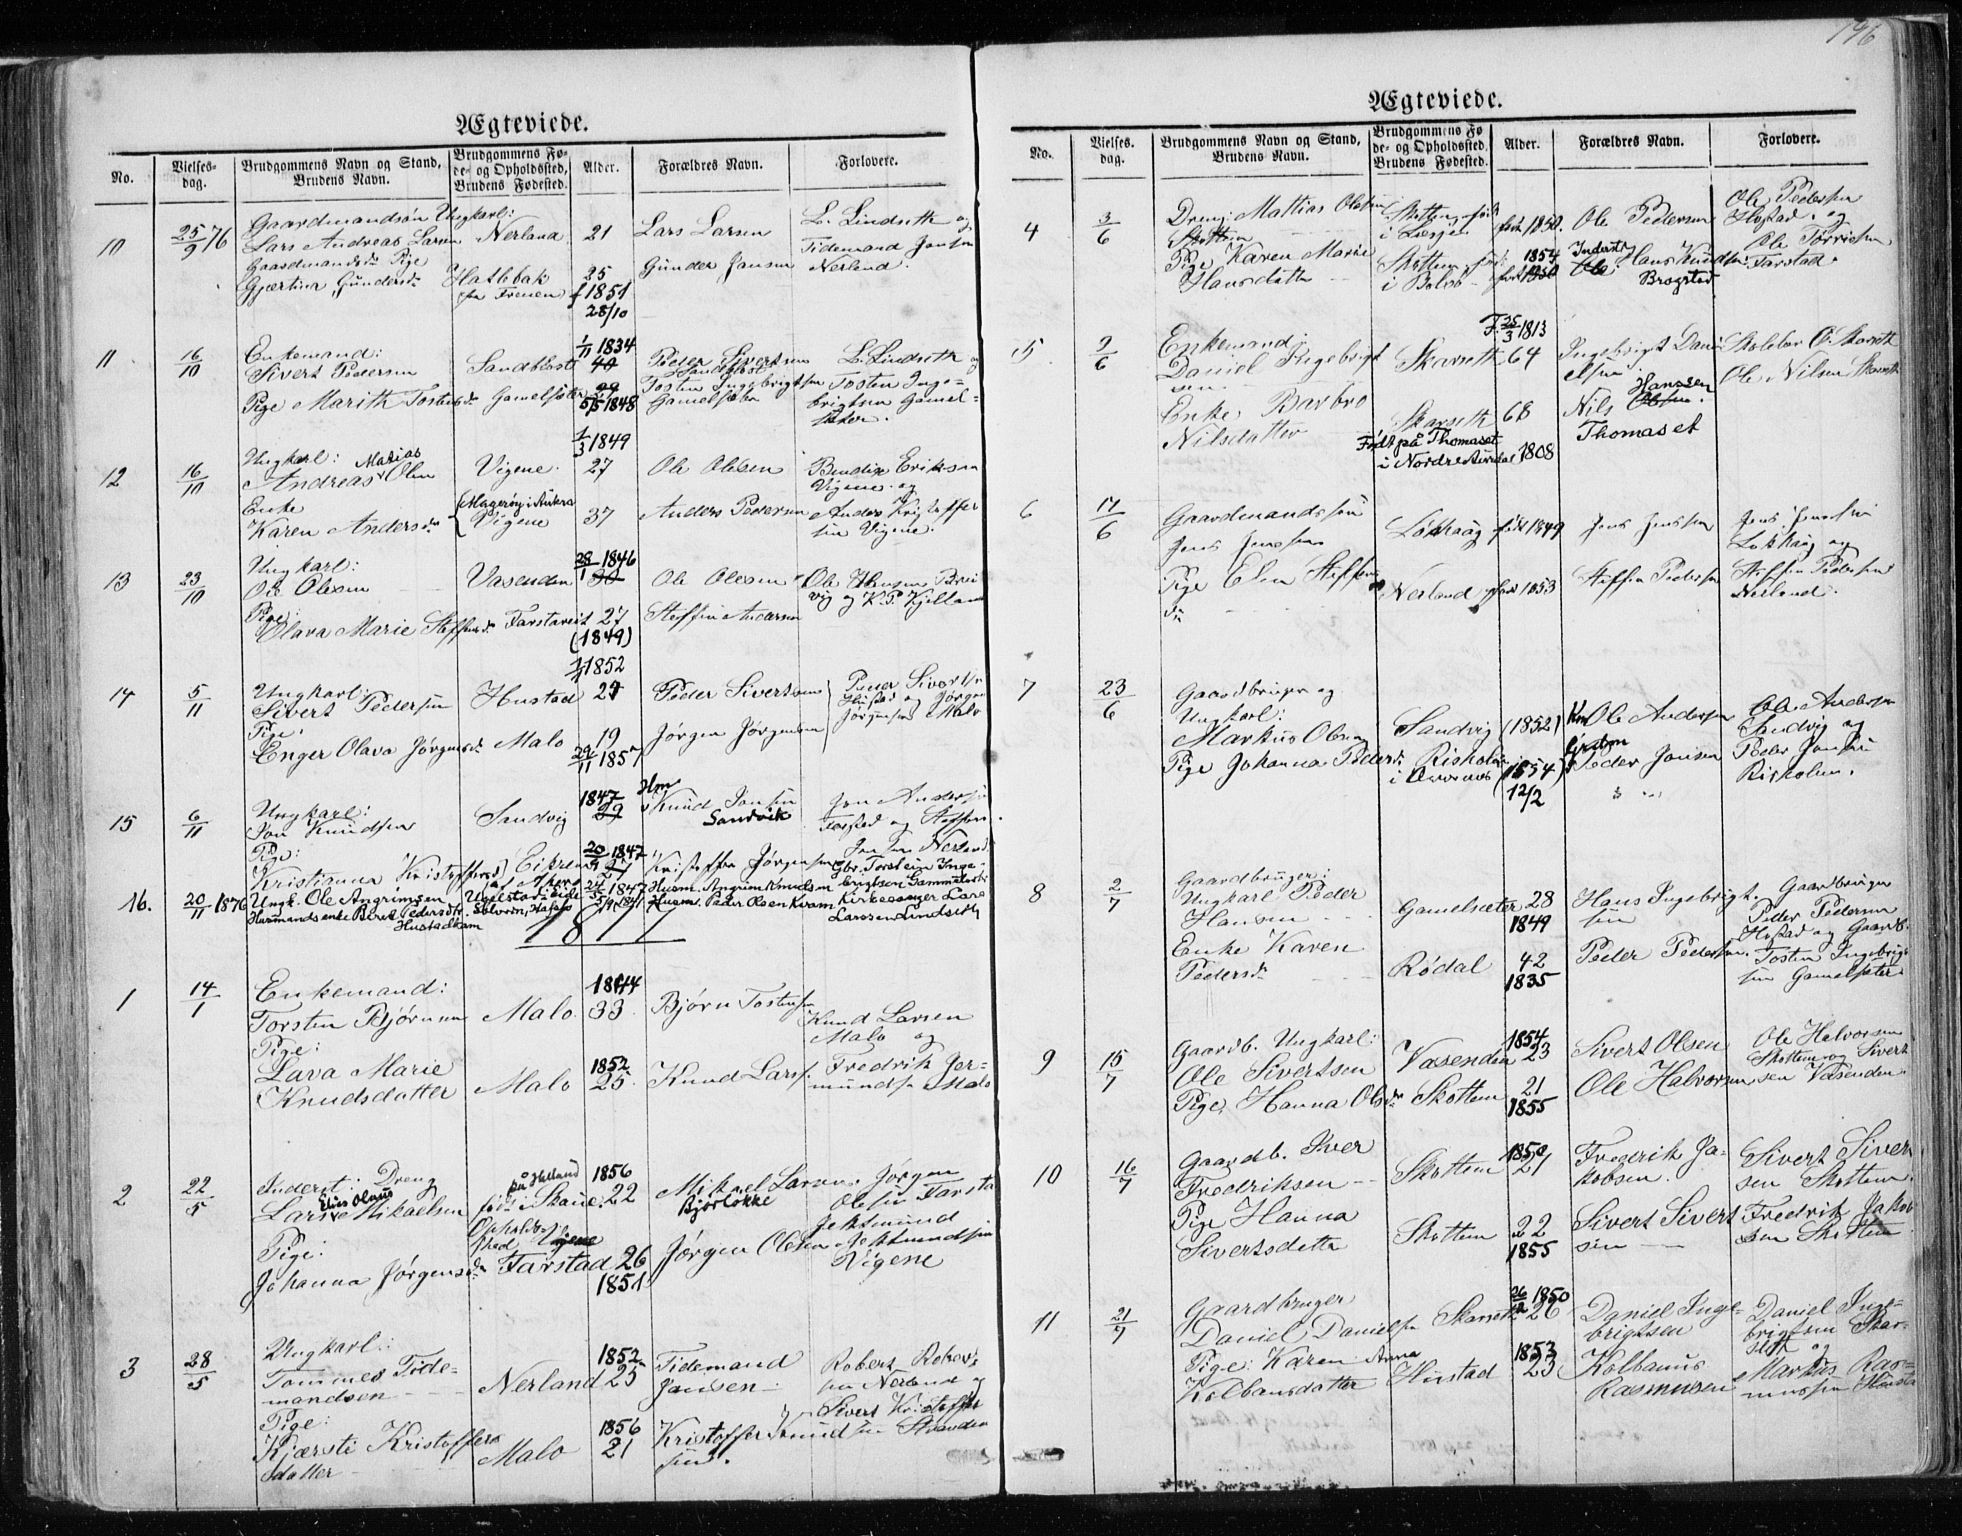 196
Ægteviede.
No.
Vielses-
dag.
Brudgommens Navn og Stand,
Brudens Navn.
Brudgommens Fø-
de- og Opholdssted,
Brudens Fødested.
Alder.
Forældres Navn.
Forlovere.
10
25/9 76
Gaardmandsøn Ungkarl:
Lars Andreas Larsen
Gaardmandsdr Pige
Gjertina Gundersdr
Nerland
Hatlebak
fra Frenen
21
25
f 1851
28/10
Lars Larsen
Gunder Jansen
L. Lindseth og
Tidemand Jansen
Nerland.
11
16/10
Enkemand:
Sivert Pedersen
Pige Marith Tostensdr
Sandbløst
Gamelsæter
1/11 1834
40
29
5/5 1848
Peder Sivertsen
Sandbløst
Tosten Ingebrigtsen
Gamelsæter
L. Lindseth og
Tosten Inge-
brigtsen Gamel-
sæter.
12
16/10
Ungkarl: Matias
Andreas Olsen
Enke
Karen Andersdr
Vigene.
Magerøy i Aukra
Vigene
1/3 1849
27
37
Ole Olsen
Anders Pedersen
Bendix Eriksen
Vigene og
Anders Kristoffer
sen Vigene.
13
23/10
Ungkarl:
Ole Olesen
Pige:
Olava Marie Steffensdr
Vasenden
Farstaveit
28/1 1846
30
27
(1849)
Ole Olesen
Steffen Andersen
Ole Hansen Brei
vig og K. P. Kjelland
14
5/11
Ungkarl:
Sivert Pedersen
Pige:
Enger Olava Jørgensdr
Hustad
Malo
1/1 1852
24
19
29/11 1857
Peder Sivertsen
Jørgen Jørgensen
Peder Sivertsen
Hustad og Jørgen
Jørgensen Malo
15
6/11
Ungkarl:
Jon Knudsen
Pige:
Kristianna Kristoffersdr
Sandvig
Eikrem
i Akerø
1847
29
20/9 1847
27
Hm
Knud Jonsen
Sandvik
Kristoffer Jørgensen
Jon Andersen
Farstad og Steffen
Jansen Nerland
16.
20/11 1876
Ungk. Ole Angrimsen
Husmandsenke Berit Pedersdtr.
Hustadkam
Ugelstad-eide
24/5 1847
5/9 1841
Husm. Angrim Knudsen
Husm. Peder Olsen Kvam
Gbr. Torstein Inge-
brigtsen Gammelsæter
Kirkesanger Lars
Larssen Lindseth
1877
1
14/1
Enkemand:
Torsten Bjørnsen
Pige:
Lava Marie
Knudsdatter
Malo
Malo
1844
33
1852
25
Bjørn Tostensen
Knud Larsen
Knud Larsen
Malo og
Fredrik Jer-
mundsen Malo
2
22/5
Inderst: Dreng
Elias Olaus
Lars Mikaelsen
Pige:
Johanna Jørgensdr
på Helland
født i Skaue.
Opholds-
sted Vigene
Farstad
1856
22
26
1851
Mikael Larsen
Bjørløkke
Jørgen Olsen
Jørgen
Olesen Farstad
Jetmund
Jetmundsen
Vigene
3
28/5
Ungkarl:
Tommes Tide-
mandsen
Pige:
Kjersti Kristoffers
datter
Nerland
Malo
1852
25
1856
21
Tidemand
Jansen
Kristoffer Knud
sen.
Robert Rober-
sen Nerland og
Sivert Kristoffer
sen Stranden
Ægteviede.
No.
Vielses-
dag.
Brudgommens Navn og Stand,
Brudens Navn.
Brudgommens Fø
de- og Opholdssted,
Brudens Fødested.
Alder.
Forældres Navn.
Forlovere.
4
3/6
Dreng: Mathias Olsen
Skottem
Pige Karen Marie
Hansdatter
Skottem født
i Læsjen
Skottem født
i Bolsø
født 1850.
1854
født 1850
Ole Pedersen
Inderst
Ole Hans Knudsen
Brogstad
Ole Pedersen
Hostad. og
Ole Torrisen
Farstad.
5
2/6
Enkemand
Daniel Ingebrigt
sen
Enke, Barbro
Nilsdatter
Skarseth
Skarseth
Født på Thomaset
i Nordre Aurdal
F. 25/3 1813
64
68
1808
Ingebrigt Dani
elsen
Nils Olsen Hanssen
Thomaset
Skoleler O. Skarseth
Ole Nilsen Skarseth
6
17/6
Gaardmandssøn
Jens Jenssen
Pige Elen Steffens
dr
Løkhaug
Nerland
født 1849
født 1853
Jens Jenssen
Steffen Pedersen
Jens Jenssen
Løkhaug og
Steffen Pedersen
Nerland.
7
23/6
Gaardbruger og
Ungkarl:
Markus Olsen
Pige Johanna Pedersdr
Sandvig
Risholm
(1852)
(1854)
12/2
Km Ole Andersen
Peder Jonsen
Ole Andersen
Sandvig og
Peder Jonsen
Risholm.
8
2/7
Gaardbruger:
Ungkarl Peder
Hansen
Enke Karen
Pedersdr
Gamelsæter
Rødal
28
1849
42
1835
Hans Ingebrigt-
sen
Peder Pedersen.
Gaardbruger
Peder Pedersen
Hostad og Gaardb.
Tosten Ingebrigt
sen Gamelsæter
9
15/7
Gaardb. Ungkarl:
Ole Sivertsen
Pige, Hanna Olsdr
Vasenden
Skottem
1854
23
21
1855
Sivert Olsen
Ole Halvorsen
Ole Halvorsen
Skottem og Sivert
sen Vasenden
10
16/7
Gaardb. Iver
Fredriksen
Pige Hanna
Sivertsdatter
Skottem
Skottem
1850
21
22
1855
Frederik Ja-
kobsen.
Sivert Sivert
sen
Sivert Siver
sen Skottem
Fredrik Jakob
sen Skottem
11
21/7
Gaardbruger
Daniel Danielsen
Pige: Karen Anna
Kolbansdatter
Skarseth
Hustad
26/12 1850
26
1853
23
Daniel Inge-
brigtsen
Kolbanus
Rasmussen
Daniel Inge-
brigtsen Skar-
seth og
Markus Ras-
mussen Hustad